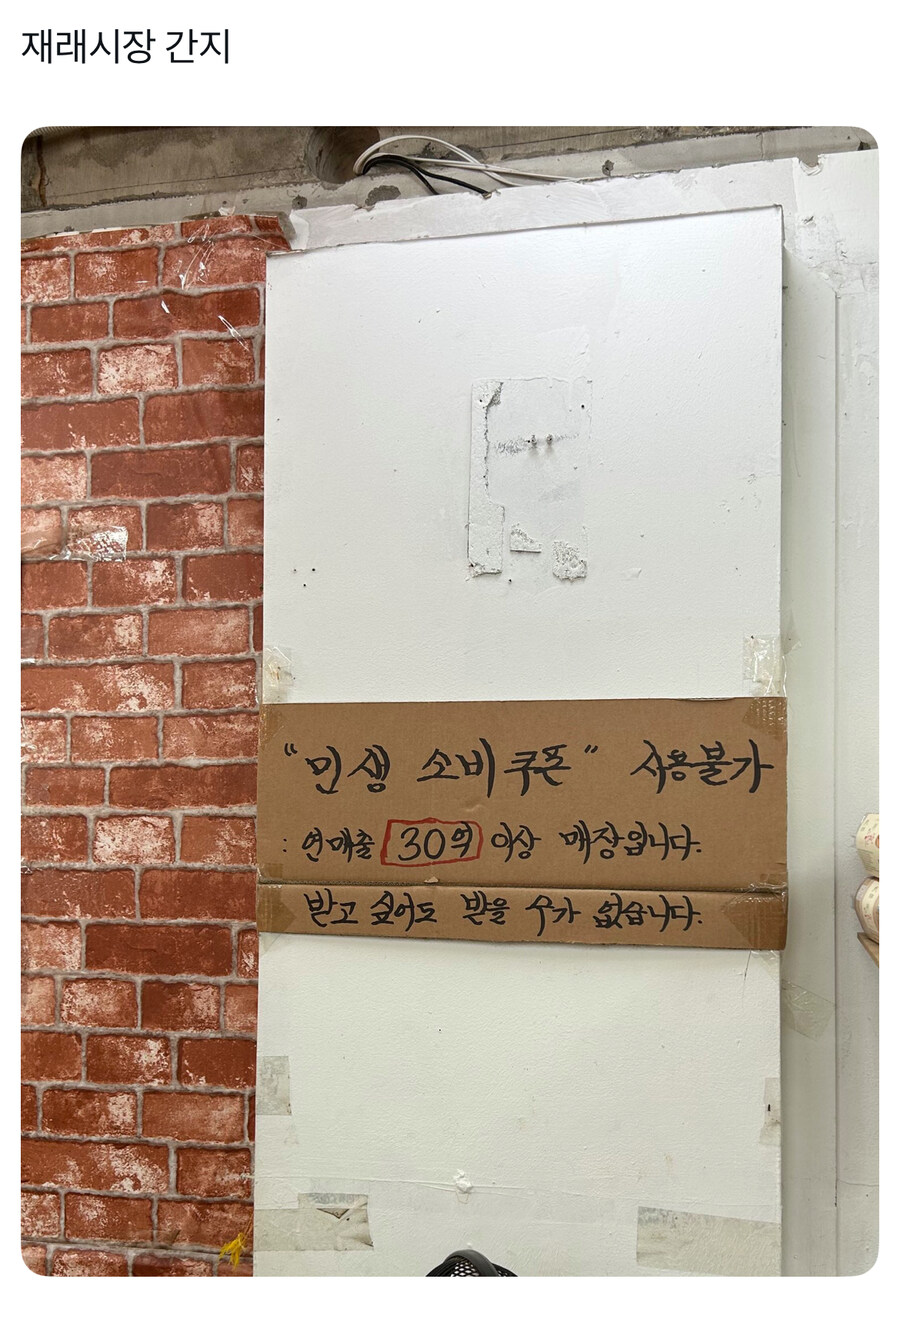 재래시장 간지
"민생 소비쿠폰" 사용불가
: 연매출 30억 이상 매장입니다.
받고 싶어도 받을 수가 없습니다.